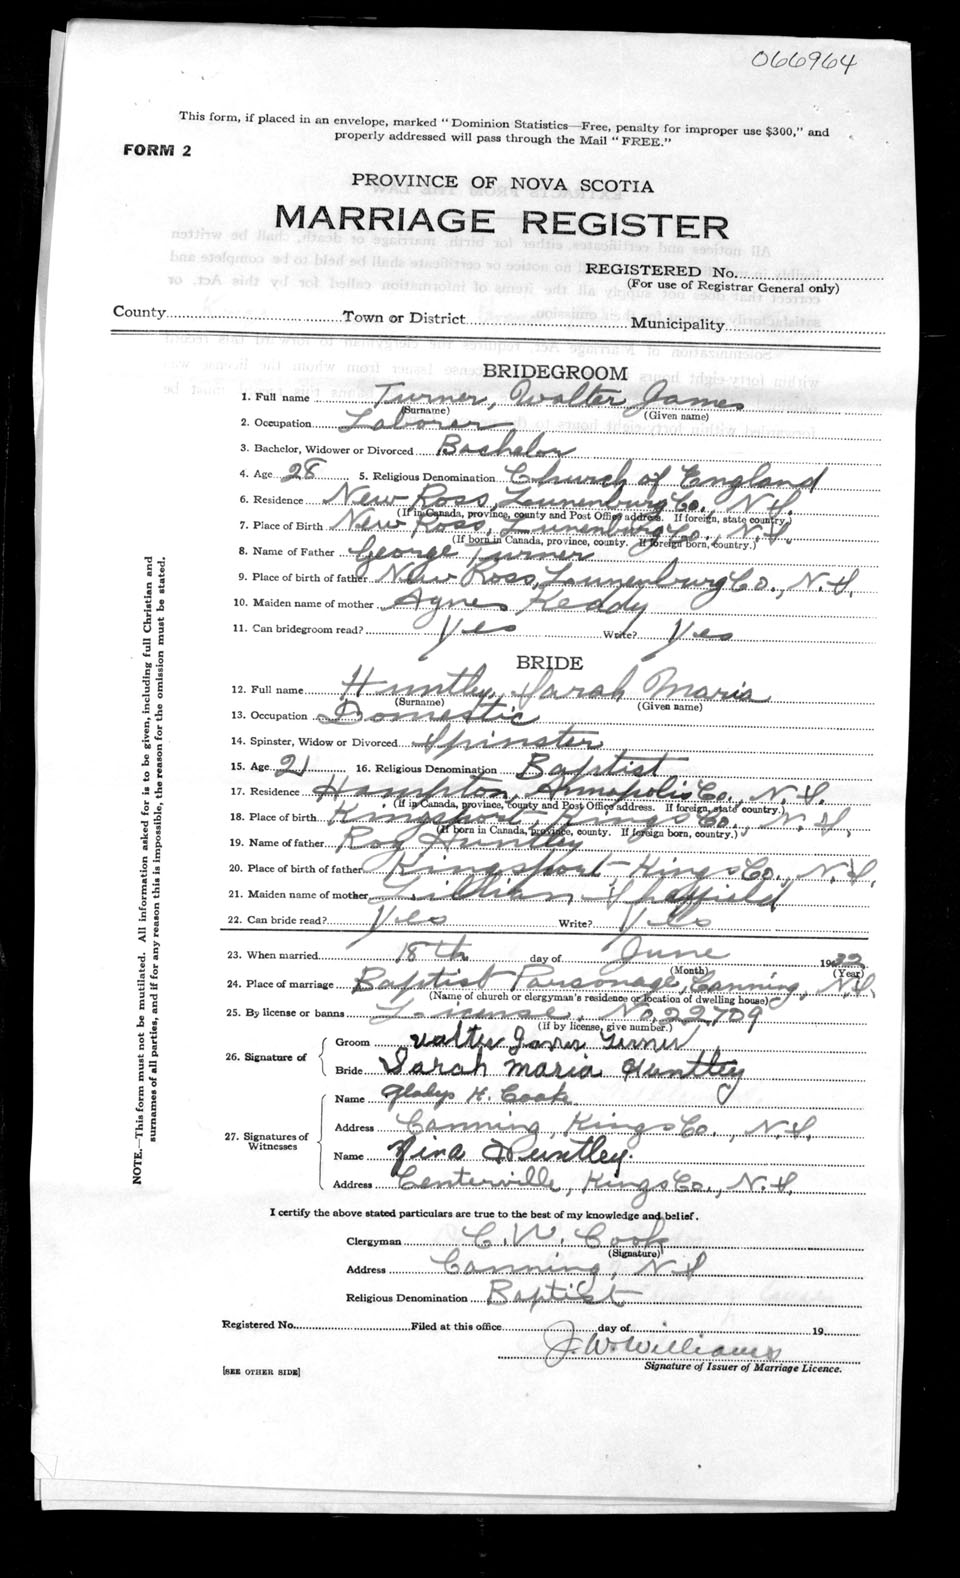 066964
This form, if placed in an envelope, marked "Dominion Statistics—Free, penalty for improper use $300," and
properly addressed will pass through the Mail "FREE."
FORM 2
PROVINCE OF NOVA SCOTIA
MARRIAGE REGISTER
REGISTERED No.
(For use of Registrar General only)
County Town or District Municipality
BRIDEGROOM
1. Full name Turner, Walter James
(Surname) (Given name)
2. Occupation Laborer
3. Bachelor, Widower or Divorced Bachelor
4. Age 28 5. Religious Denomination Church of England
6. Residence New Ross, Lunenburg Co., N.S.
(If in Canada, province, county and Post Office address. If foreign, state country.)
7. Place of Birth New Ross, Lunenburg Co., N.S.
(If born in Canada, province, county. If foreign born, country.)
8. Name of Father George Turner
9. Place of birth of father New Ross, Lunenburg Co., N.S.
10. Maiden name of mother Agnes Keddy
11. Can bridegroom read? Yes Write? Yes
BRIDE
12. Full name Huntley, Sarah Maria
(Surname) (Given name)
13. Occupation Domestic
14. Spinster, Widow or Divorced Spinster
15. Age 21 16. Religious Denomination Baptist
17. Residence Hampton, Annapolis Co., N.S.
(If in Canada, province, county and Post Office address. If foreign, state country.)
18. Place of birth Kingsport, Kings Co., N.S.
(If born in Canada, province, county. If foreign born, country.)
19. Name of father Roy Huntley
20. Place of birth of father Kingsport - Kings Co., N.S.
21. Maiden name of mother Lillian Shaffield
22. Can bride read? Yes Write? Yes
23. When married 18th day of June 1932
(Month) (Year)
24. Place of marriage Baptist Parsonage, Canning, N.S.
(Name of church or clergyman's residence or location of dwelling house)
25. By license or banns License, No. 22709
(If by license, give number.)
26. Signature of
Groom Walter James Turner
Bride Sarah Maria Huntley
27. Signatures of Witnesses
Name Gladys H. Cook
Address Canning, Kings Co., N.S.
Name Nina Huntley.
Address Centerville, Kings Co., N.S.
I certify the above stated particulars are true to the best of my knowledge and belief.
Clergyman C. W. Cook
(Signature)
Address Canning, N.S
Religious Denomination Baptist
Registered No. Filed at this office day of 19
J. W. Williams
Signature of Issuer of Marriage Licence.
[SEE OTHER SIDE]
NOTE.—This form must not be mutilated. All information asked for is to be given, including full Christian and
surnames of all parties, and if for any reason this is impossible, the reason for the omission must be stated.